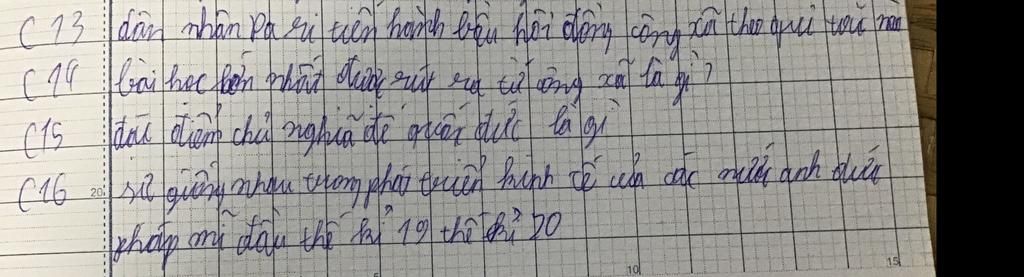 C13 dân nhân Pa ri tiến hành bầu hôi đồng công xã theo qui toú nào
C14 bài học lớn nhất được rút ra từ công xã là gì?
C15 đăc điểm chủ nghiã đế quốc đức là gì
C16 sư giống nhau trong phát triển kinh tế của các nước anh đức
pháp mĩ đầu thế kỉ 19 thế kỉ 20